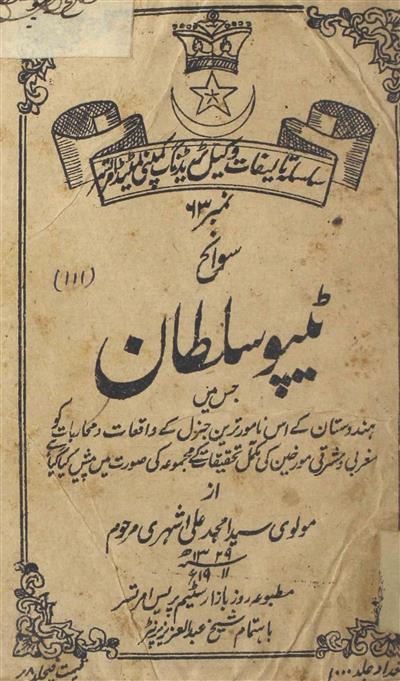 سلسلہ تالیفات وکیل ٹریڈنگ کمپنی لمیٹڈ امرتسر
نمبر ۶۳
سوانح
(۱۱۱)
ٹیپو سلطان
جس میں
ہندوستان کے اس نامور ترین جنرل کے واقعات و محاربات کو
مغربی و مشرقی مورخین کی مکمل تحقیقات کے مجموعہ کی صورت میں پیش کیا گیا ہے
از
مولوی سید امجد علی اشہری مرحوم
۱۳۲۹ھ
۱۹۱۱ء
مطبوعہ روز بازار سٹیم پریس امرتسر
باہتمام شیخ عبدالعزیز پرنٹر
تعداد جلد ۱۰۰۰
قیمت فیجلد ۸؍